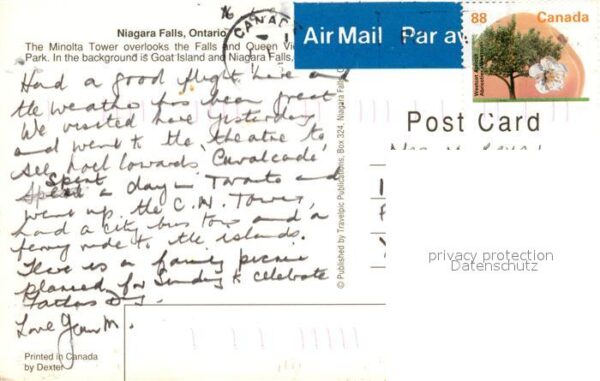 Niagara Falls, Ontario
The Minolta Tower overlooks the Falls and Queen Vic
Park. In the background is Goat Island and Niagara Falls,
Had a good flight here and
the weather has been great
We visited here yesterday
and went to the theatre to
see Noel Cowards Cavalcade
Spent a day in Toronto and
went up the C.N. Tower,
had a city bus tour and a
ferry ride to the islands.
There is a family picnic
planned for Sunday to celebrate
Fathers Day.
Love Jean M.
Printed in Canada
by Dexter
© Published by Travelpic Publications, Box 324, Niagara Falls,
CANADA
Air Mail Par av
88 Canada
Post Card
privacy protection
Datenschutz